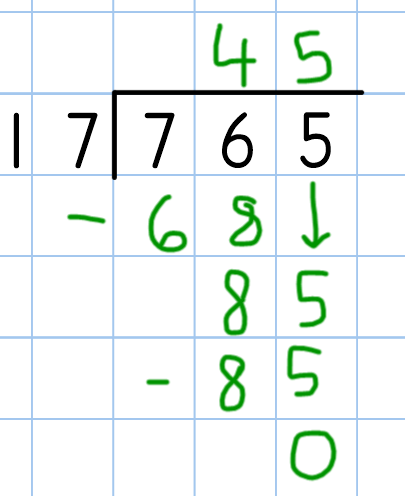 4 5
1 7 7 6 5
- 6 8 ↓
8 5
- 8 5
0